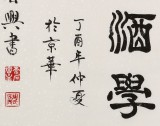 酒學
丁酉年仲夏
於京華
興書